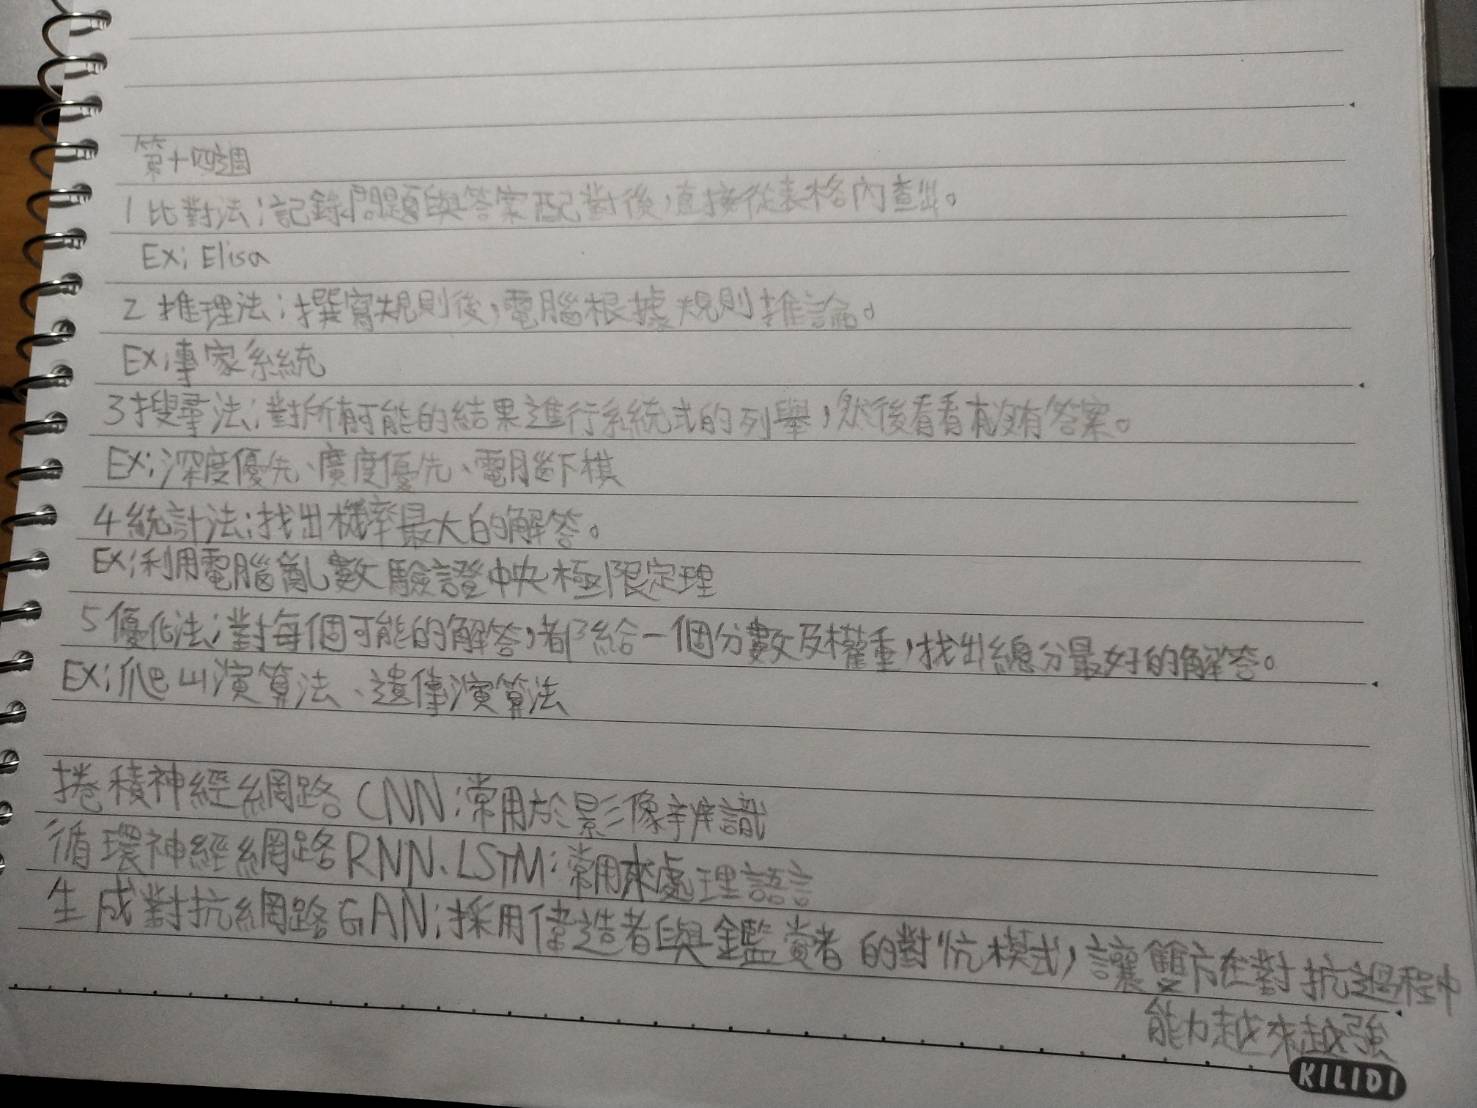 第十四週
1 比對法:記錄問題與答案配對後,直接從表格內查出。
Ex: Elisa
2 推理法:撰寫規則後,電腦根據規則推論。
Ex:專家系統
3 搜尋法:對所有可能的結果進行系統式的列舉,然後看看有沒有答案。
Ex:深度優先、廣度優先、電腦下棋
4 統計法:找出機率最大的解答。
Ex:利用電腦亂數驗證中央極限定理
5 優化法:對每個可能的解答,都給一個分數及權重,找出總分最好的解答。
Ex:爬山演算法、遺傳演算法
捲積神經網路 CNN:常用於影像辨識
循環神經網路 RNN、LSTM:常用來處理語言
生成對抗網路 GAN:採用偽造者與鑑賞者的對抗模式,讓雙方在對抗過程中
能力越來越強
KILIDI